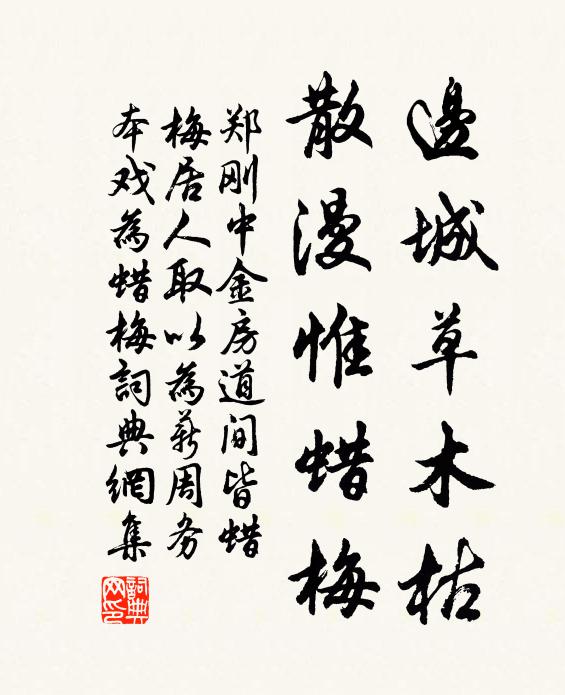 邊城草木枯
散漫惟蜡梅
郑刚中金房道间皆蜡
梅居人取以為薪周务
本戏為蜡梅詞典網集
詞典
网印